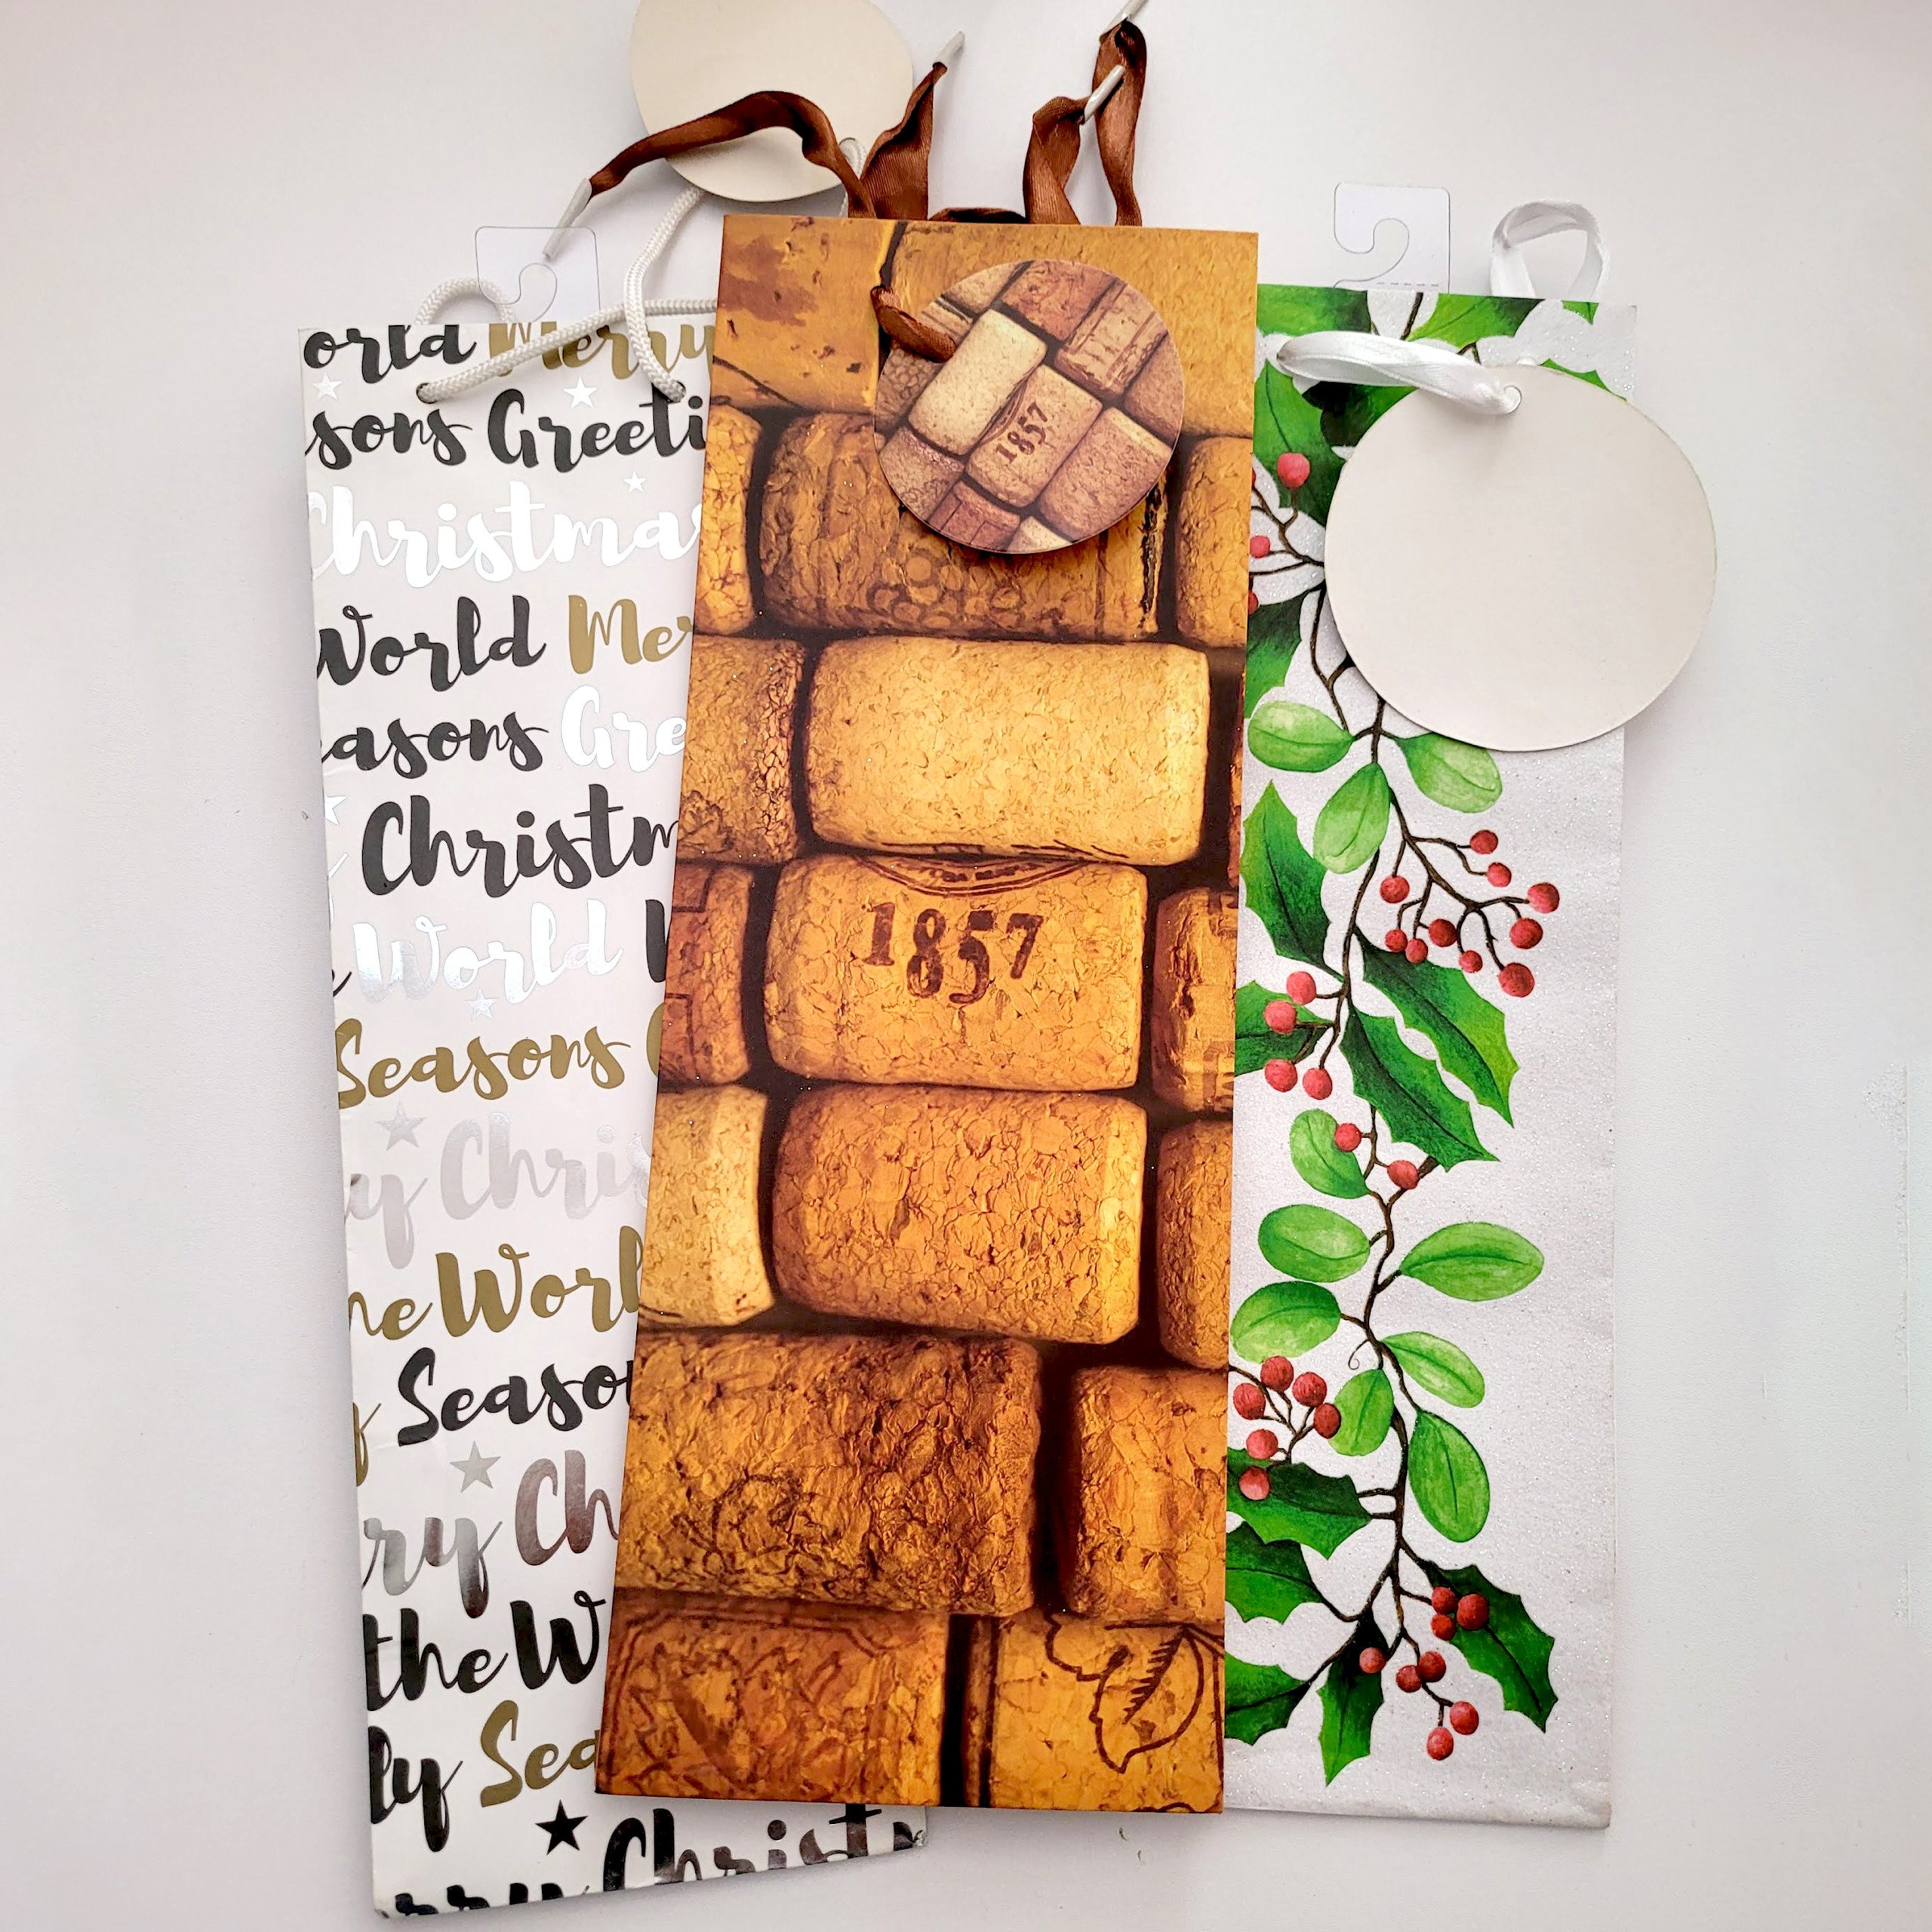 orld Merry
sons Greeti
Christmas
World Mer
easons Gre
Christm
World
Seasons
y Chris
he Worl
y Season
rry Ch
the W
ly Sea
erry Christ
1857
1857